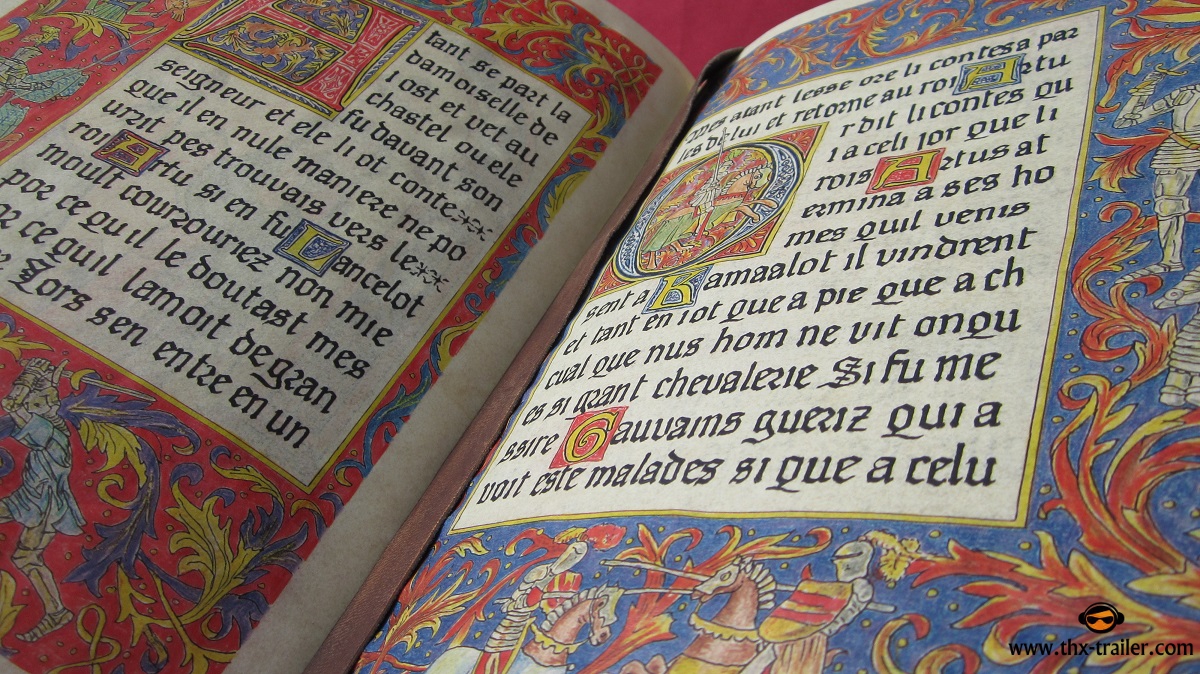 A tant se part la
damoiselle de
lost et vet au
chastel ou ele
fu davant son
seigneur et ele li ot conte
que il en nule maniere ne po
urrit pes trouvais vers le
roi Artu si en fu Lancelot
moult courrouriez non mie
por ce quil le doutast mes
ce quil lamoit degran
Lors sen entre en un
atant lesse ore li contes a par
les de lui et retorne au roi Artu
r dit li contes qu
i a celi jor que li
rois Artus at
ermina a ses ho
mes quil venis
sent a Kamaalot il vindrent
et tant en i ot que a pie que a ch
eval que nus hom ne vit onqu
es si grant chevalerie Si fu me
ssire Gauvains gueriz qui a
voit este malades si que a celu
www.thx-trailer.com